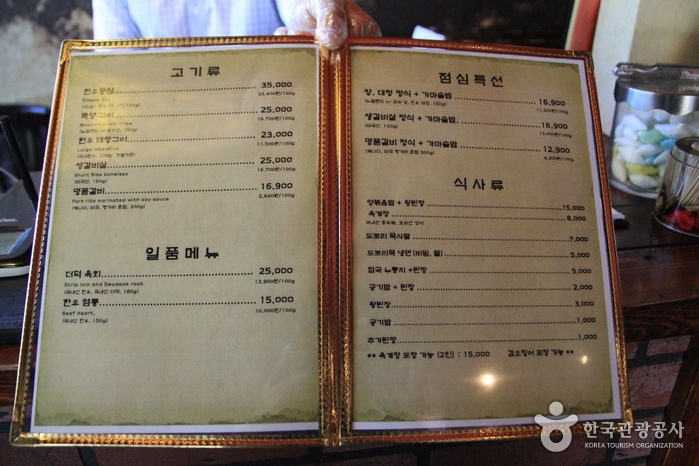 고기류
한우등심 35,000
Ribeye
특양구이 25,000
16,700원/100g
한우 대창구이 23,000
Large intestine 11,500원/100g
생갈비살 25,000
Short Ribs boneless 16,700원/100g
명품갈비 16,900
Pork ribs marinated with soy sauce 5,640원/100g
일품메뉴
더덕 육회 25,000
Strip loin and Deodeok root 13,900원/100g
한우 염통 15,000
Beef Heart, 10,000원/100g
(국내산 한우, 150g)
점심특선
양, 대창 정식 + 가마솥밥 16,900
생갈비살 정식 + 가마솥밥 16,900
명품갈비 정식 + 가마솥밥 12,900
식사류
양볶음밥 + 왕된장 15,000
육개장 8,000
도토리 묵사발 7,000
도토리묵 냉면 (비빔, 물) 5,000
진국 누룽지 +된장 5,000
공기밥 + 된장 2,000
왕된장 3,000
공기밥 1,000
추가된장 1,000
** 육개장 포장 가능 (2인) : 15,000 갑오징어 포장 가능 **
한국관광공사
KOREA TOURISM ORGANIZATION